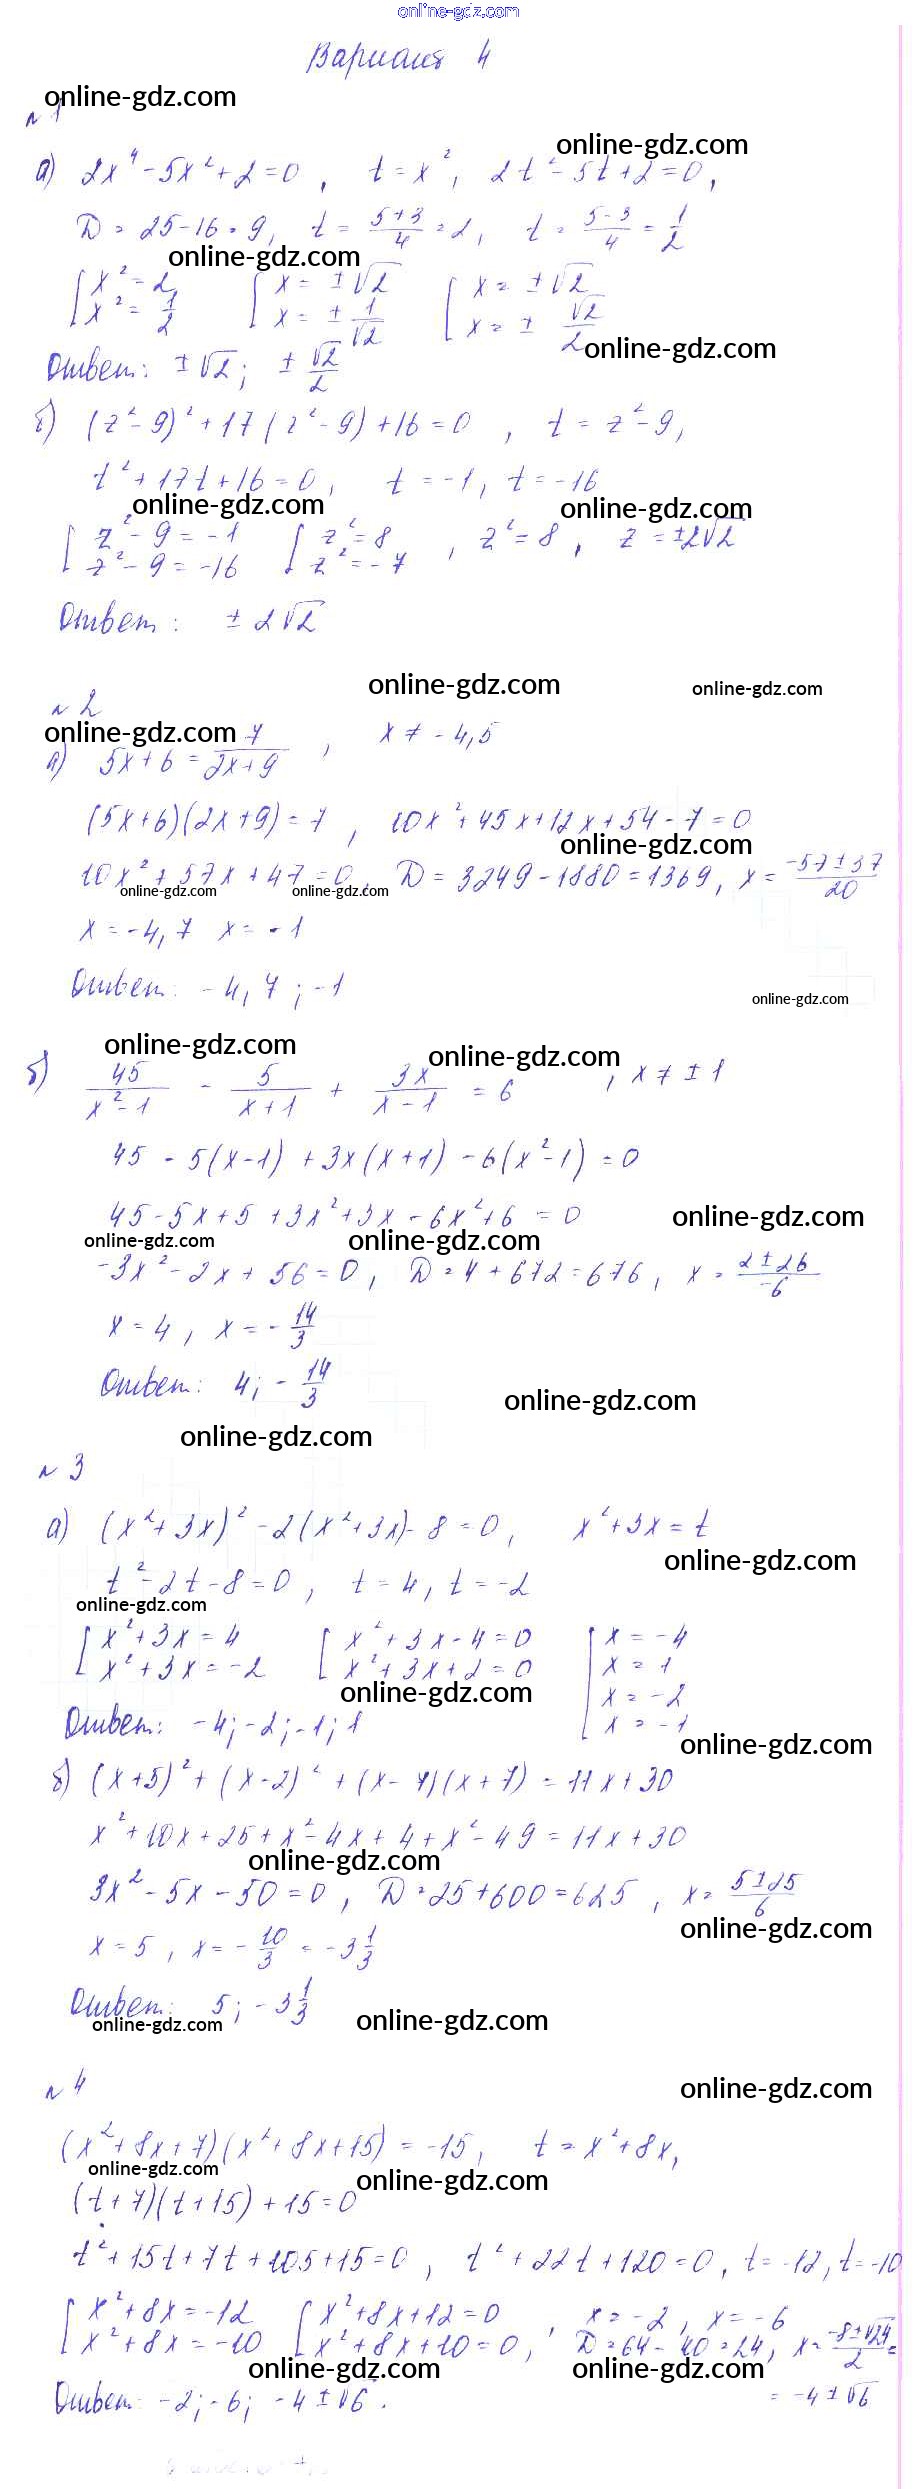 online-gdz.com
Вариант 4
online-gdz.com
№ 1
online-gdz.com
а) 2x⁴ - 5x² + 2 = 0 , t = x², 2t² - 5t + 2 = 0,
D = 25 - 16 = 9, t = (5+3)/4 = 2, t = (5-3)/4 = 1/2
online-gdz.com
[ x² = 2, x² = 1/2 [ x = ±√2 x = ± 1/√2 [ x = ±√2 x = ± √2/2
online-gdz.com
Ответ: ±√2; ± √2/2
б) (z² - 9)² + 17(z² - 9) + 16 = 0 , t = z² - 9,
t² + 17t + 16 = 0, t = -1, t = -16
online-gdz.com online-gdz.com
[ z² - 9 = -1 z² - 9 = -16 [ z² = 8 z² = -7 , z² = 8, z = ±2√2
Ответ: ± 2√2
online-gdz.com online-gdz.com
№ 2
online-gdz.com
а) 5x + 6 = 7/(2x+9) , x ≠ -4,5
(5x+6)(2x+9) = 7, 10x² + 45x + 12x + 54 - 7 = 0
online-gdz.com
10x² + 57x + 47 = 0, D = 3249 - 1880 = 1369, x = (-57 ± 37)/20
online-gdz.com online-gdz.com
x = -4,7 x = -1
Ответ: -4,7; -1
online-gdz.com
online-gdz.com online-gdz.com
б) 45/(x²-1) - 5/(x+1) + 3x/(x-1) = 6 , x ≠ ±1
45 - 5(x-1) + 3x(x+1) - 6(x²-1) = 0
45 - 5x + 5 + 3x² + 3x - 6x² + 6 = 0
online-gdz.com
online-gdz.com online-gdz.com
-3x² - 2x + 56 = 0, D = 4 + 672 = 676, x = (2 ± 26)/-6
x = 4, x = - 14/3
Ответ: 4; - 14/3
online-gdz.com
online-gdz.com
№ 3
а) (x² + 3x)² - 2(x² + 3x) - 8 = 0, x² + 3x = t
online-gdz.com
t² - 2t - 8 = 0, t = 4, t = -2
online-gdz.com
[ x² + 3x = 4 x² + 3x = -2 [ x² + 3x - 4 = 0 x² + 3x + 2 = 0 [ x = -4 x = 1 x = -2 x = -1
online-gdz.com
Ответ: -4; -2; -1; 1
online-gdz.com
б) (x+5)² + (x-2)² + (x-7)(x+7) = 11x + 30
x² + 10x + 25 + x² - 4x + 4 + x² - 49 = 11x + 30
online-gdz.com
3x² - 5x - 50 = 0, D = 25 + 600 = 625, x = (5 ± 25)/6
online-gdz.com
x = 5, x = - 10/3 = -3 1/3
Ответ: 5; -3 1/3
online-gdz.com online-gdz.com
№ 4
online-gdz.com
(x² + 8x + 7)(x² + 8x + 15) = -15, t = x² + 8x,
online-gdz.com online-gdz.com
(t+7)(t+15) + 15 = 0
t² + 15t + 7t + 105 + 15 = 0, t² + 22t + 120 = 0, t = -12, t = -10
[ x² + 8x = -12 x² + 8x = -10 [ x² + 8x + 12 = 0 x² + 8x + 10 = 0, , x = -2, x = -6 D = 64 - 40 = 24, x = (-8 ± √24)/2 =
online-gdz.com online-gdz.com
= -4 ± √6
Ответ: -2; -6; -4 ± √6.